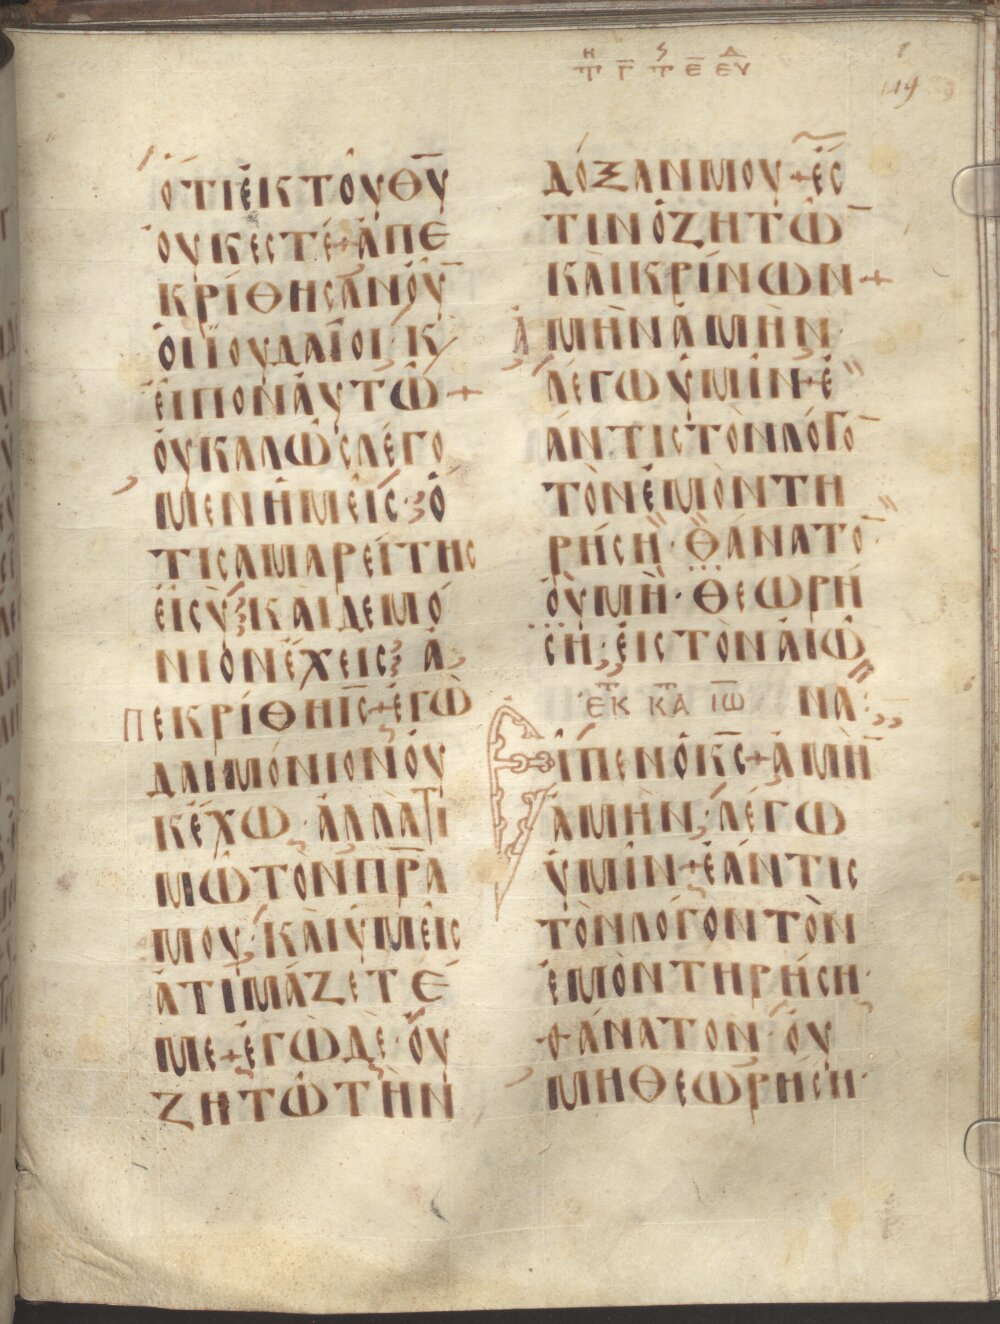 Κ Ϛ Δ
Τ Γ Τ Ε ΕΥ
119
ὅΤΙἐΚΤΟῦΘΥ
ΟΥΚΕΣΤΕ+ἀΠΕ
ΚΡΊΘΗϹΑΝΟΥ
ΟἱἸΟΥΔΑῖΟΙ·Κ
ΕἶΠΟΝἀΥΤΩ+
ΟΥΚΑΛΩϹΛΕΓΟ
ΜΕΝἡΜΕῖϹ·Ὁ
ΤΙϹΑΜΑΡΕΊΤΗϹ
ΕἶϹΥ·ΚΑΙΔΕΜΟ
ΝΙΟΝἔΧΕΙϹ·Ἀ
ΠΕΚΡΙΘΗΙϹ+ἐΓὼ
ΔΑΙΜΌΝΙΟΝΟΥ
ΚἔΧΩ·ἀΛΛΑΤΙ
ΜΩΤΟΝΠΡΑ
ΜΟΥ·ΚΑΙὑΜΕῖϹ
ἀΤΙΜΆΖΕΤΈ
ΜΕ+ἐΓὼΔΕ·ΟΥ
ΖΗΤΩΤΗΝ
ΔΌΞΑΝΜΟΥ+ἔϹ
ΤΙΝὁΖΗΤΩ
ΚΑΙΚΡΊΝΩΝ+
ἈΜΗΝἀΜΗΝ
ΛΕΓΩὑΜΙΝ+ἐ
ΆΝΤΙϹΤΟΝΛΌΓΟ
ΤΟΝἐΜΟΝΤΗ
ΡΉϹΗ·ΘΆΝΑΤΟ
ΟΥΜΗ·ΘΕΩΡΉ
ϹΗ·ΕἰϹΤΟΝΑἰΩ
ΝΑ·
ΕΚ ΚΑ ΙΩ
ΕἶΠΕΝὁΚϹ+ἀΜΗ
ἀΜΗΝ·ΛΕΓΩ
ὑΜΙΝ+ἐΆΝΤΙϹ
ΤΟΝΛΌΓΟΝΤΟΝ
ἐΜΟΝΤΗΡΉϹΗ·
ΘΆΝΑΤΟΝ·ΟΥ
ΜΗΘΕΩΡΉϹΗ·